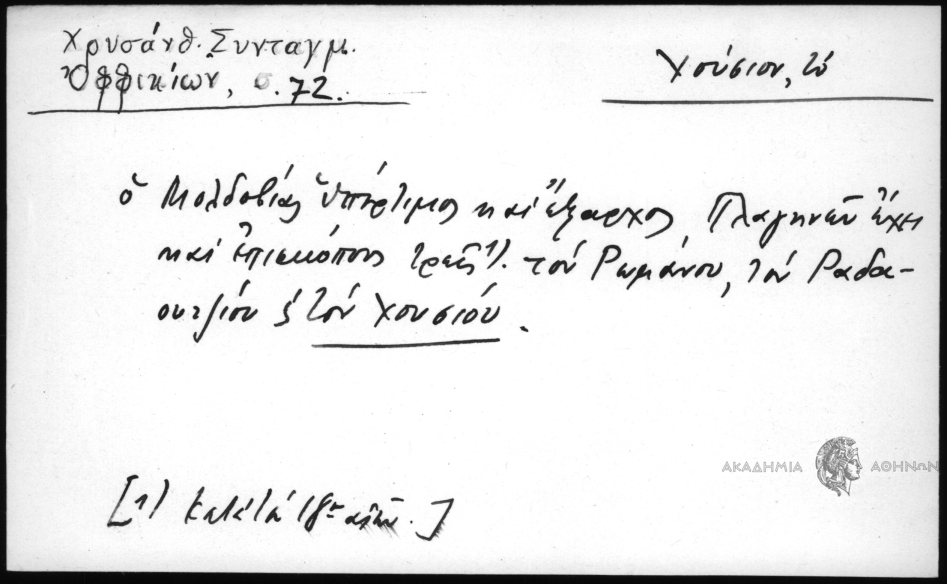 Χρυσάνθ. Συνταγμ.
Ὀφφικίων, σ. 72.
Χούσιον, τό
ὁ Μολδοβίας ὑπέρτιμος καὶ ἔξαρχος Πλαγηνῶν ἔχει
καὶ ἐπισκόπους τρεῖς 1). τὸν Ρωμάνου, τὸν Ραδα-
ουτζίου ϗ τὸν Χουσιού.
[1) κατὰ τὸν 18ον αἰῶνα.]
ΑΚΑΔΗΜΙΑ ΑΘΗΝΩΝ